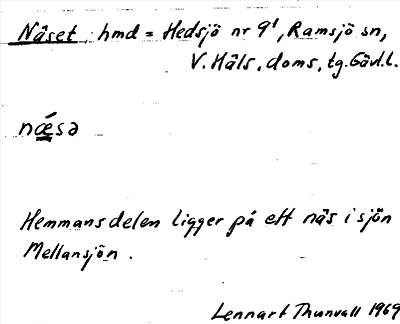 Näset hmd = Hedsjö nr 9¹, Ramsjö sn,
V. Häls. doms. tg. Gävl.l.
næ̀sə
Hemmansdelen ligger på ett näs i sjön
Mellansjön.
Lennart Thunvall 1969